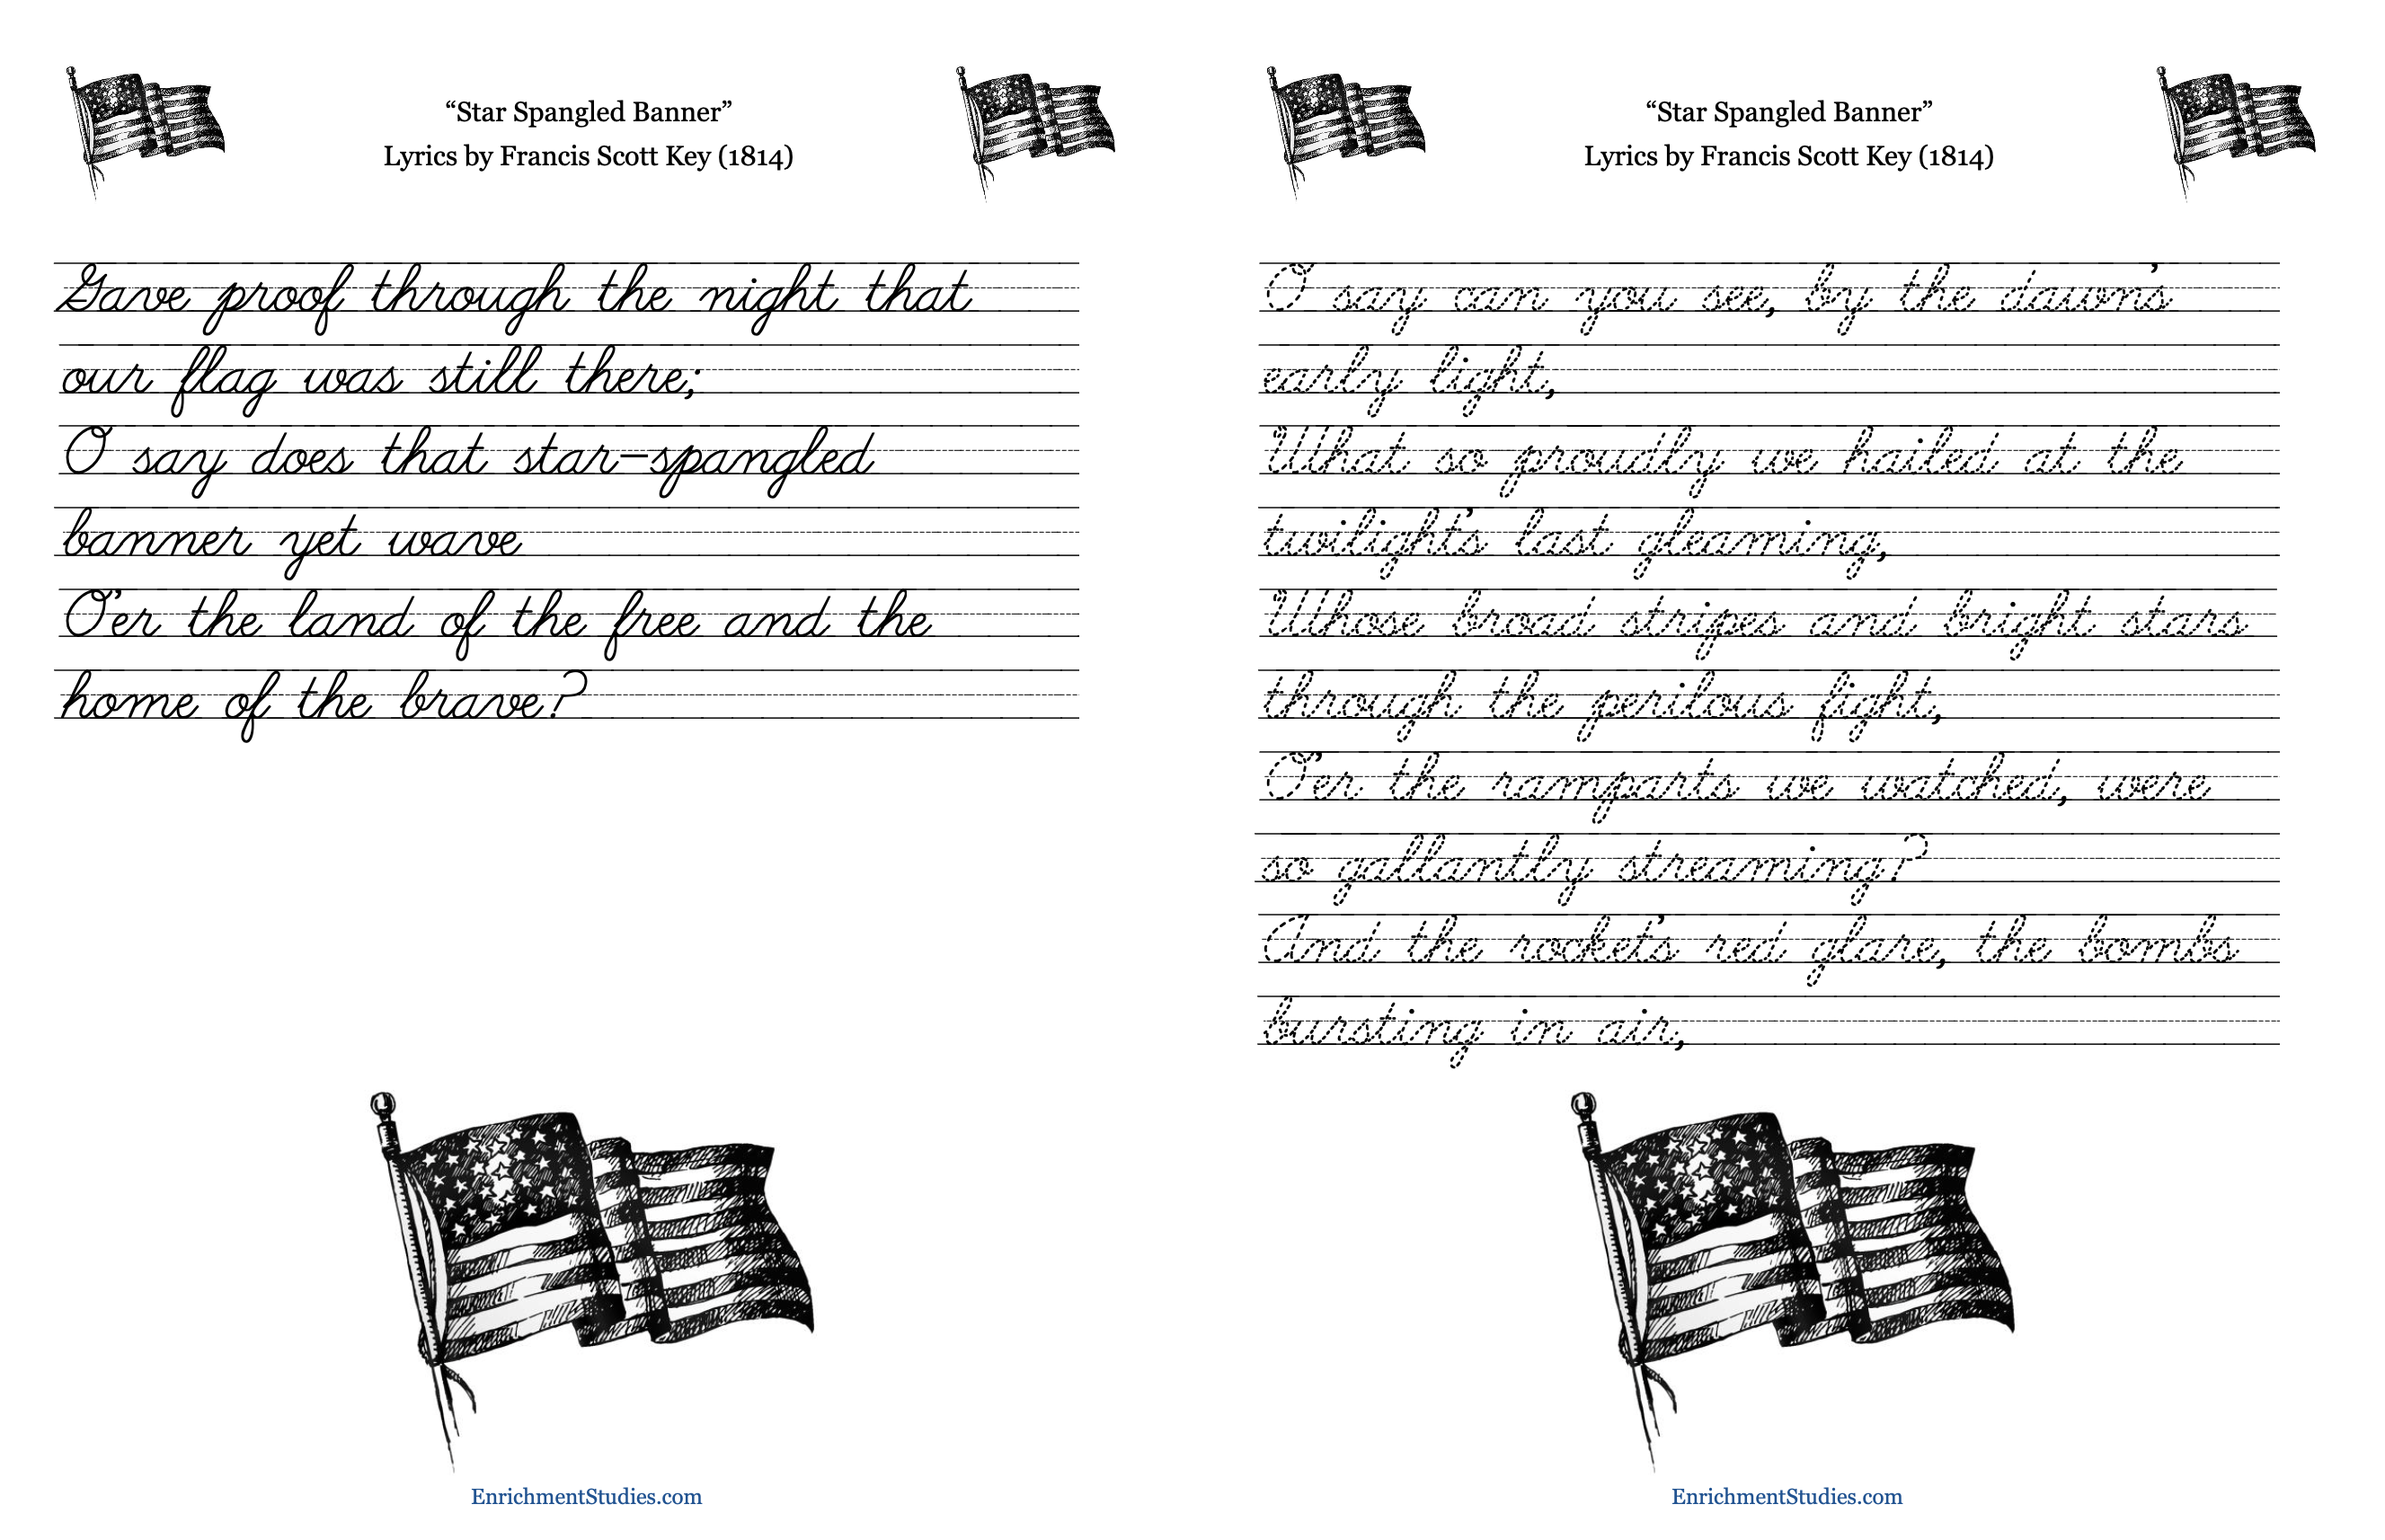 “Star Spangled Banner”
Lyrics by Francis Scott Key (1814)
Gave proof through the night that
our flag was still there;
O say does that star-spangled
banner yet wave
O'er the land of the free and the
home of the brave?
EnrichmentStudies.com
“Star Spangled Banner”
Lyrics by Francis Scott Key (1814)
O say can you see, by the dawn's
early light,
What so proudly we hailed at the
twilight's last gleaming,
Whose broad stripes and bright stars
through the perilous fight,
O'er the ramparts we watched, were
so gallantly streaming?
And the rocket's red glare, the bombs
bursting in air,
EnrichmentStudies.com